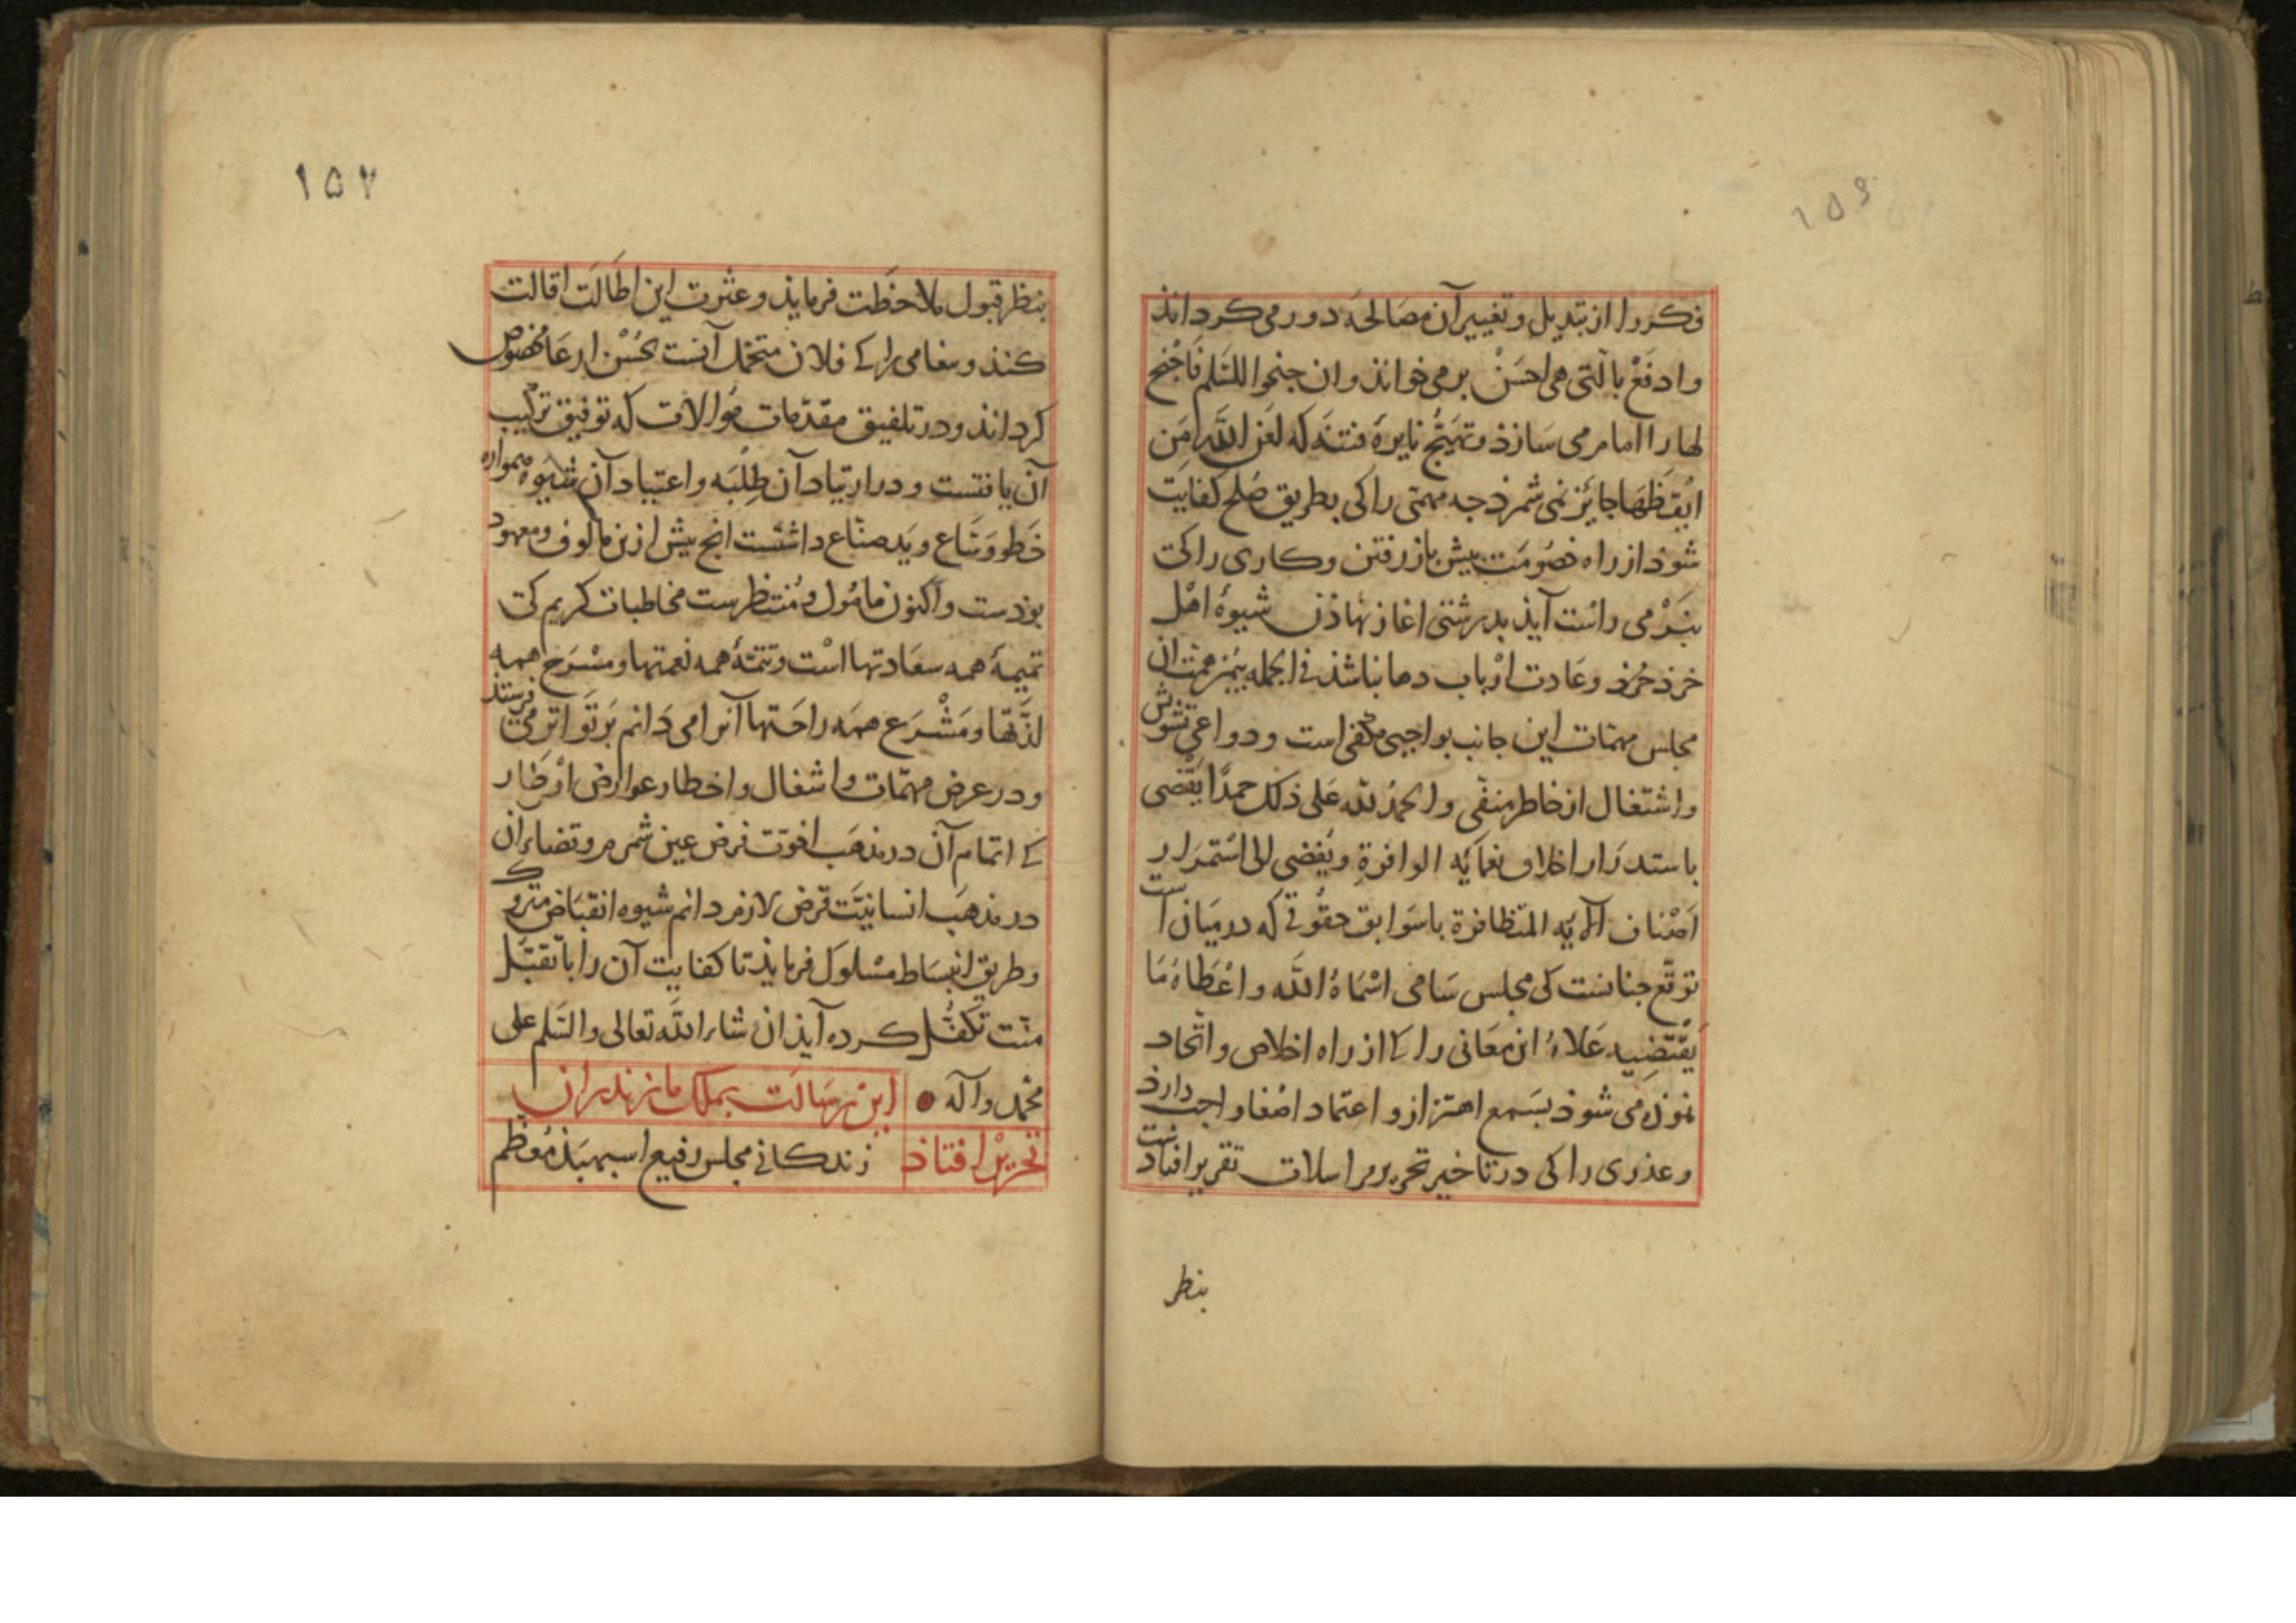 ۱۵۶
فکر را از تبدیل و تغییر آن مصالحه دور می کرداند
وادفَعْ بالّتی هی احسَنْ بر می خواند وان جنحوا للسَّلم فَاجْنَح
لها را امام می سَازذ و تهَیُّج نایرهٔ فتنَه که لعَن اللّه مَن
ایْقظهَا جایز نمی شمرذ جه مهمّی را کی بطریق صُلح کفایت
شوذ از راه خصُومَت بیش باز رفتن و کاری را کی
بنَرْمی راسْت آیذ بدرشتی اغاز نهاذن شیوهٔ اهْل
خرذ خُرْد و عَادت ارْباب دها نباشذ فی الجمله بیُمن همّت ان
مجلس مهمّات این جانب بواجبی مکفی است و دواعی تشوّش
واشتغال از خاطر منفی والحمدُ للّه عَلی ذلک حمدًا یقْضی
باستدرَار اخلاف نعمایٔه الوافرةِ ویُفضی الی اسْتمرَار
اَصْناف آلایٔه المتظافرة باسَوابق حقُوقی که درمیَان است
توقّع جنانست کی مجلس سَامی اسْمَاهُ اللّه واعْطَاهُ مَا
یَقْتَضیه عَلاهُ ان معَانی را کی از راه اخلاص واتّحاد
نموذه می شوذ بسَمع اهتزاز و اعتماد اصْغا واجب دارذ
وعذری را کی در تاخیر تحریر مراسلات تقریر افتادنست
بنظر
۱۵۷
بنظر قبول ملاحظَت فرمایذ و عثرت این اطَالَت اقالت
کنذ و بیغامی را کی فلان متحمّل آنست بحُسْن ارعَا مخصُوص
کرداند و در تلفیق مقدّمات مُوالات که توفیق ترکیب
آن یافتست و در ارتیاد آن طِلْبَه و اعتیاد آن شیوه همواره
خَطو وَسَاع و یَد صناع داشتست انج بیش ازین مالوف ومعهود
بوذست و اکنون مامُول و مُنتظرست مخاطبات کریم کی
تمیمهٔ همه سعَادتها اسْت و تتمّهٔ همه نعمتها و مسْرَح همه
لذّتهَا و مَشْرَع همَه راحَتها آنرا می دَانم بَر تَواتر می فرستد
و در عرض مهمّات و اشغال و اخطار عوارض اوْطَار
کی اتمام آن در مذهَب اخوّت فرض عین شمرم و قضاء آن
در مذهَب انسانیَّت قرض لازم دانم شیوه انقبَاض متروک
و طریق انبسَاط مسْلوک فرمایذ تا کفایت آن را با تقبّل
منّت تکفُّل کرده آیذ ان شاء اللّه تعالی والسّلم علی
محمّد وآله این رسَالَت بملک مازندران
تحریرْ افتاذ زندکانی مجلس رفیع اسبهبَذ مُعظم